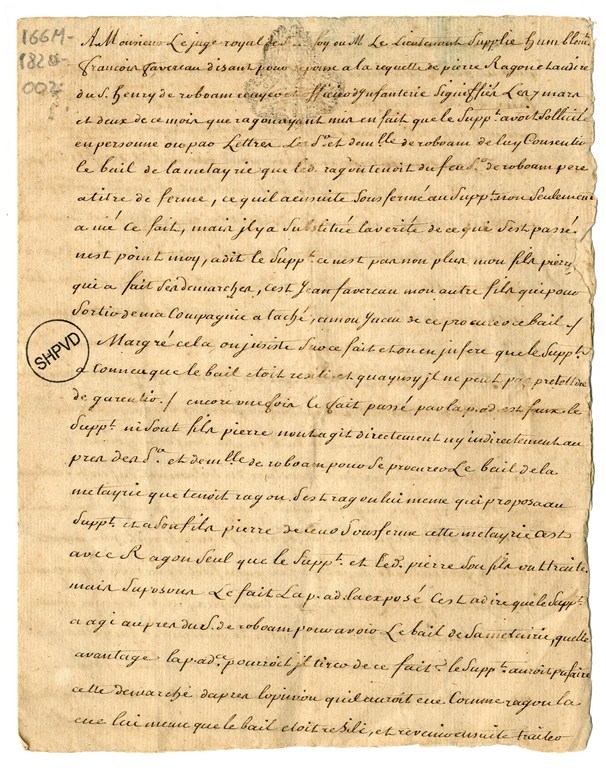 166M-
182W-
007
A Monsieur Le juge royal de Ste foy ou M Le Lieutenant Supplie humblemt
françois favereau disant pour reponse a la requette de pierre Ragon
du S. henry de roboam ecuyer et officier d'Infanterie Signiffiée Les 7 mars
et deux de ce mois que ragon ayant mis en fait que le Suppt avoit Sollicité
en personne ou par Lettres Les Sr et demlle de roboam de luy Consentir
le bail de la metayrie que led. ragon tenoit du feu Sr de roboam pere
a titre de ferme, ce qu'il a ensuite Sous fermé au Suppt non Seulement
a nié Ce fait, mais jl y a Substitué la verité de ce qui S'est passé.
n'est point moy, a dit le Suppt ce n'est pas non plus mon fils pierre,
qui a fait Ses demarches, c'est jean favereau mon autre fils qui pour
Sortir de ma Compagnie a taché, a mon jnsceu de ce procurer ce bail ./
Margré cela on jnsiste Sur ce fait et on en jnfere que le Suppt
a Conneu que le bail etoit resili et qu'aynsy jl ne peut pas pretendre
de garentie ./ encore une fois le fait passé par la p. ad. est faux le
Suppt ni Sont fils pierre n'ont agit directement ny indirectement au
pres des Sr et demlle de roboam pour Se procurer Le bail de la
metayrie que tenoit ragon. S'est ragon lui meme qui proposa au
Suppt et a Son fils pierre de leur Sousferme cette metayrie c'est
avec Ragon Seul que le Suppt et led. pierre Son fils ont traité
mais Suposons Le fait La p. ad. la exposé C'est a dire que le Suppt
a agi aupres du S. de roboam pour avoir Le bail de Sa metairie, quelle
avantage la p. ade pourroit jl tirer de ce fait. le Suppt auroit pu faire
cette demarche dapres lopinion quil auroit eue Comme ragon la
eue lui meme que le bail etoit resili, et revenir ensuite traiter
SHPVD